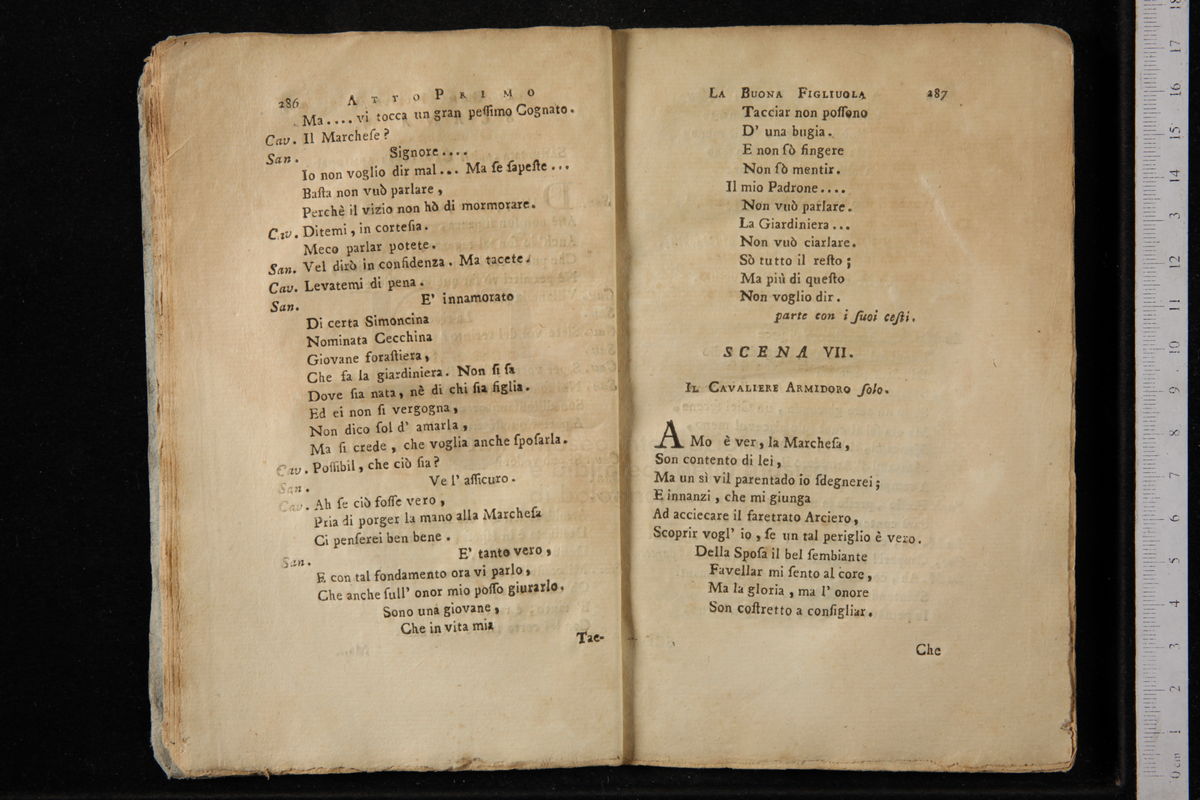 286 ATTO PRIMO
Ma.... vi tocca un gran peſſimo Cognato.
Cav. Il Marcheſe?
San. Signore....
Io non voglio dir mal... Ma ſe ſapeſte...
Baſta non vuò parlare,
Perchè il vizio non hò di mormorare.
Cav. Ditemi, in corteſia.
Meco parlar potete.
San. Vel dirò in confidenza. Ma tacete.
Cav. Levatemi di pena.
San. E' innamorato
Di certa Simoncina
Nominata Cecchina
Giovane foraſtiera,
Che fa la giardiniera. Non ſi ſa
Dove ſia nata, nè di chi ſia figlia.
Ed ei non ſi vergogna,
Non dico ſol d' amarla,
Ma ſi crede, che voglia anche ſpoſarla.
Cav. Poſſibil, che ciò ſia?
San. Ve l' aſſicuro.
Cav. Ah ſe ciò foſſe vero,
Pria di porger la mano alla Marcheſa
Ci penſerei ben bene.
San. E' tanto vero,
E con tal fondamento ora vi parlo,
Che anche ſull' onor mio poſſo giurarlo.
Sono una giovane,
Che in vita mia
Tac-
LA BUONA FIGLIUOLA 287
Tacciar non poſſono
D' una bugia.
E non ſò fingere
Non ſò mentir.
Il mio Padrone....
Non vuò parlare.
La Giardiniera...
Non vuò ciarlare.
Sò tutto il reſto;
Ma più di queſto
Non voglio dir.
parte con i ſuoi ceſti.
SCENA VII.
IL CAVALIERE ARMIDORO ſolo.
AMo è ver, la Marcheſa,
Son contento di lei,
Ma un sì vil parentado io ſdegnerei;
E innanzi, che mi giunga
Ad acciecare il faretrato Arciero,
Scoprir vogl' io, ſe un tal periglio è vero.
Della Spoſa il bel ſembiante
Favellar mi ſento al core,
Ma la gloria, ma l' onore
Son coſtretto a conſigliar.
Che
0 cm 1 2 3 4 5 6 7 8 9 10 11 12 13 14 15 16 17 18